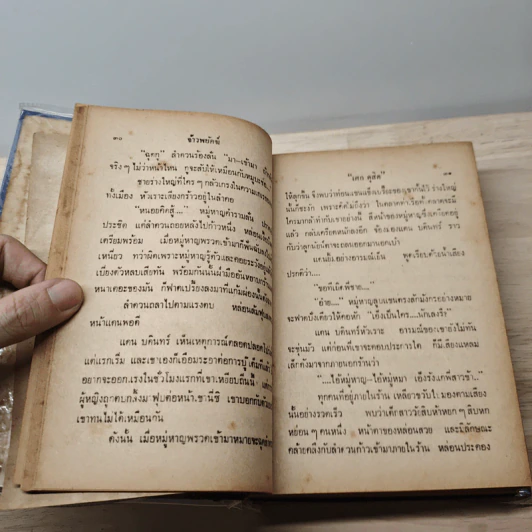 ๓๐ จ้าวพยัคฆ์
"ฉุดกู" ลำดวนร้องลั่น "มา-เข้ามา
จริง ๆ ไม่ว่าหน้าไหน กูจะสับให้เหมือนกับหมูบะช่อ..."
ชายร่างใหญ่ที่ใคร ๆ กลัวเกรงในความเหี้ยมเกรียม
ทั้งเมือง หัวเราะเสียงกร้าวอยู่ในลำคอ
"หนอยคิดสู้..." หมู่หาญคำรามลั่น
ประชิด แต่ลำดวนถอยหลังไปก้าวหนึ่ง หล่อน
เตรียมพร้อม เมื่อหมู่หาญพรวดเข้ามาก็ฟัน
เหนี่ยว ทว่าผิดเพราะหมู่หาญรู้ตัวและคอยระวังอยู่
เบี่ยงตัวหลบเสียทัน พร้อมกันนั้นน้ำมืออัน
หนาเตอะของมัน ก็ฟาดเปรี้ยงลงมาที่แก้ม
ลำดวนถลาไปตามแรงตบ หล่อน
หน้าแคนพอดี
แคน บดินทร์ เห็นเหตุการณ์ตลอดปลอดโปร่ง
แต่แรกเริ่ม และเขาเองก็เอือมระอาต่อการบู๊เต็มที
อยากจะออกแรงในชั่วโมงแรกที่เขาเหยียบถิ่นนี้
ผู้หญิงถูกตบกลิ้งมาฟุบต่อหน้าเขานี่ซี เขาบอกกับตัวเอง
เขาทนไม่ได้เหมือนกัน
ดังนั้น เมื่อหมู่หาญพรวดเข้ามาหมายจะ
"เศก ดุสิต" ๓๑
ให้ลุกขึ้น จึงพบว่าท่อนแขนแข็งแรงของเขากันไว้ ร่างใหญ่
นั้นก็ชะงัก เพราะคิดไม่ถึงว่า ในตลาดท่าเรือที่
ใครมากล้าทำกับเขาอย่างนี้ สีหน้าของหมู่หาญจึงเครียดอยู่
แล้ว กลับเครียดหนักลงอีก จ้องมองแคน บดินทร์ ราว
กับว่าลูกนัยน์ตาจะถลนออกมานอกเบ้า
แคนยิ้มอย่างอารมณ์เย็น พูดเรียบด้วยน้ำเสียง
ปรกติว่า...
"ขอทีเถิดพี่ชาย..."
"อ้าย..." หมู่หาญสูบแขนตรงลักษณะอย่างหมาย
จะฟาดปังเดียวให้คอหัก "เอ็งเป็นใคร...นักเลงรึ"
แคน บดินทร์หัวเราะ อารมณ์ของเขายังไม่ทัน
จะขุ่นมัว แต่ก่อนที่เขาจะตอบประการใด ก็มีเสียงแหลม
เล็กดังมาจากภายนอกร้านว่า
"....ไอ้หมู่หาญ-ไอ้หมู่หมา เอ็งรังแกพี่สาวข้า..."
ทุกคนที่อยู่ภายในร้าน เหลียวขวับไปมองตามเสียง
นั้นอย่างรวดเร็ว พบว่าเด็กสาววัยสิบห้าหยก ๆ สิบหก
หย่อน ๆ คนหนึ่ง หน้าตาของหล่อนสวย และมีลักษณะ
คล้ายคลึงกับลำดวนก้าวเข้ามาภายในร้าน หล่อนประคอง